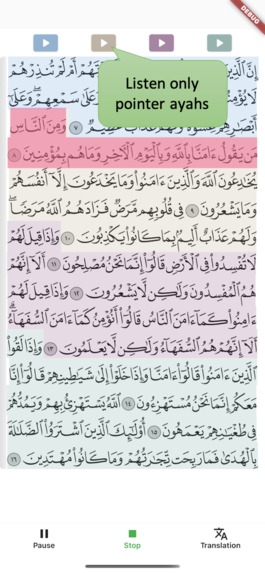 DEBUG
Listen only
pointer ayahs
إِنَّ أَمْ لَمْ تُنذِرْهُمْ
سَمْعِهِمْ ۖ وَعَلَىٰٓ
٧ وَمِنَ ٱلنَّاسِ
مَن يَقُولُ ءَامَنَّا بِٱللَّهِ وَبِٱلْيَوْمِ ٱلْءَاخِرِ وَمَا هُم بِمُؤْمِنِينَ ٨
يُخَٰدِعُونَ ٱللَّهَ وَٱلَّذِينَ ءَامَنُوا۟ وَمَا يَخْدَعُونَ إِلَّآ أَنفُسَهُمْ
وَمَا يَشْعُرُونَ ٩ فِى قُلُوبِهِم مَّرَضٌ فَزَادَهُمُ ٱللَّهُ مَرَضًا ۖ
وَلَهُمْ عَذَابٌ أَلِيمٌۢ بِمَا كَانُوا۟ يَكْذِبُونَ ١٠ وَإِذَا قِيلَ لَهُمْ
لَا تُفْسِدُوا۟ فِى ٱلْأَرْضِ قَالُوٓا۟ إِنَّمَا نَحْنُ مُصْلِحُونَ ١١ أَلَآ إِنَّهُمْ
هُمُ ٱلْمُفْسِدُونَ وَلَٰكِن لَّا يَشْعُرُونَ ١٢ وَإِذَا قِيلَ لَهُمْ
ءَامِنُوا۟ كَمَآ ءَامَنَ ٱلنَّاسُ قَالُوٓا۟ أَنُؤْمِنُ كَمَآ ءَامَنَ ٱلسُّفَهَآءُ ۗ
أَلَآ إِنَّهُمْ هُمُ ٱلسُّفَهَآءُ وَلَٰكِن لَّا يَعْلَمُونَ ١٣ وَإِذَا لَقُوا۟
ٱلَّذِينَ ءَامَنُوا۟ قَالُوٓا۟ ءَامَنَّا وَإِذَا خَلَوْا۟ إِلَىٰ شَيَٰطِينِهِمْ قَالُوٓا۟ إِنَّا
مَعَكُمْ إِنَّمَا نَحْنُ مُسْتَهْزِءُونَ ١٤ ٱللَّهُ يَسْتَهْزِئُ بِهِمْ وَيَمُدُّهُمْ
فِى طُغْيَٰنِهِمْ يَعْمَهُونَ ١٥ أُو۟لَٰٓئِكَ ٱلَّذِينَ ٱشْتَرَوُا۟ ٱلضَّلَٰلَةَ
بِٱلْهُدَىٰ فَمَا رَبِحَت تِّجَٰرَتُهُمْ وَمَا كَانُوا۟ مُهْتَدِينَ ١٦
Pause Stop Translation